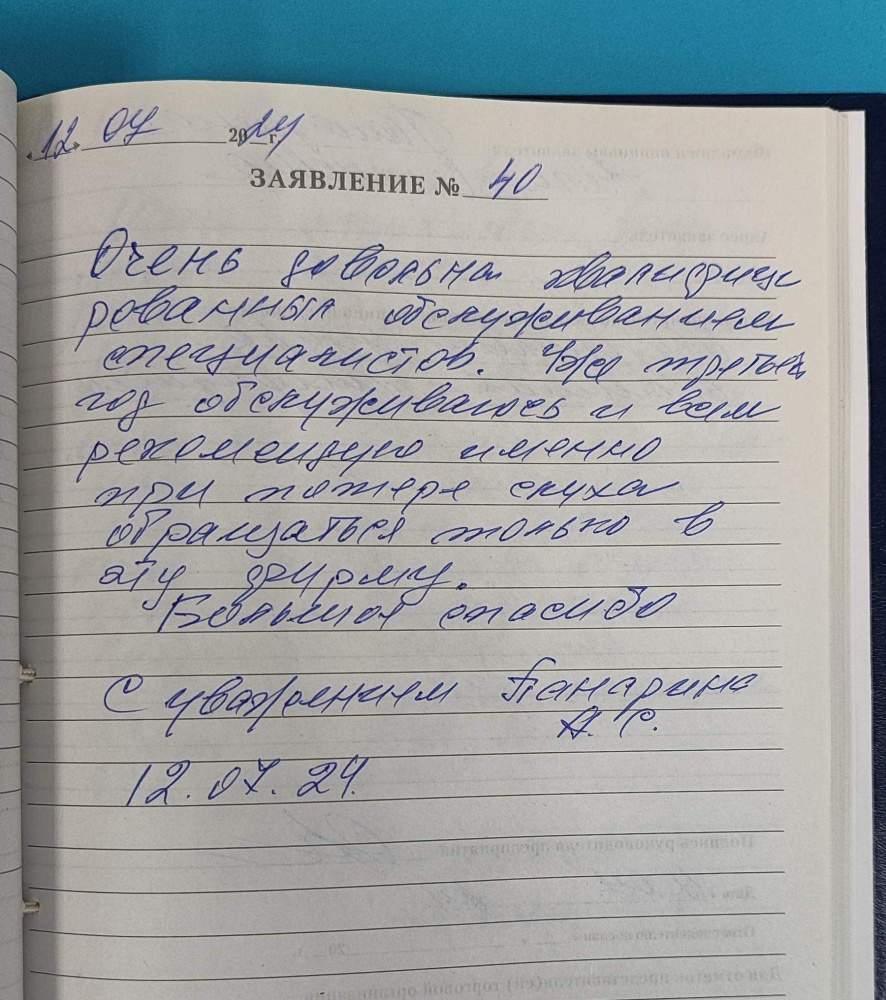 «12» 07 2024 г.
ЗАЯВЛЕНИЕ № 40
Очень довольна квалифици
рованным обслуживанием
специалистов. Уже третий
год обслуживаюсь и вам
рекомендую именно
при потере слуха
обращаться только в
эту фирму.
Большое спасибо
С уважением Панарина
А. С.
12.07.24.